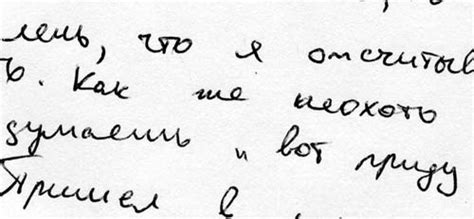 лень, что я отсчитыв
ю. Как же неохоть
думаешь " вот приду
Пришел в